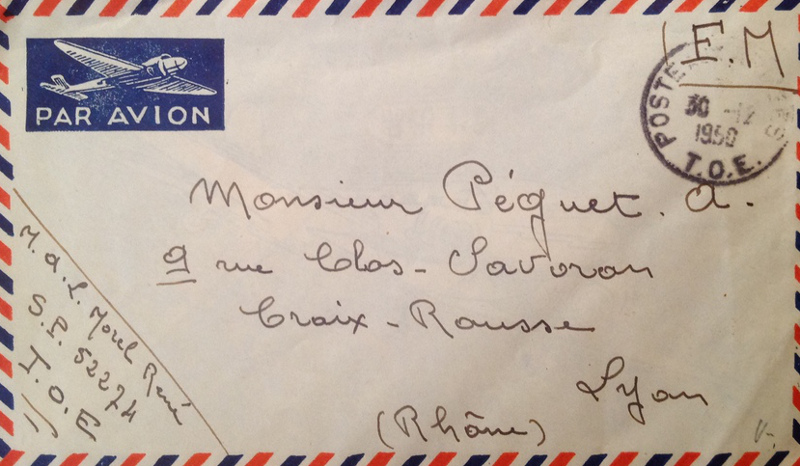 PAR AVION
F.M
POSTE
30 -12
1950
T.O.E.
Monsieur Péguet. A.
9 rue Clos-Savoron
Croix-Rousse
Lyon
(Rhône)
M.d.L. Morel René
S.P. 52274
T.O.E